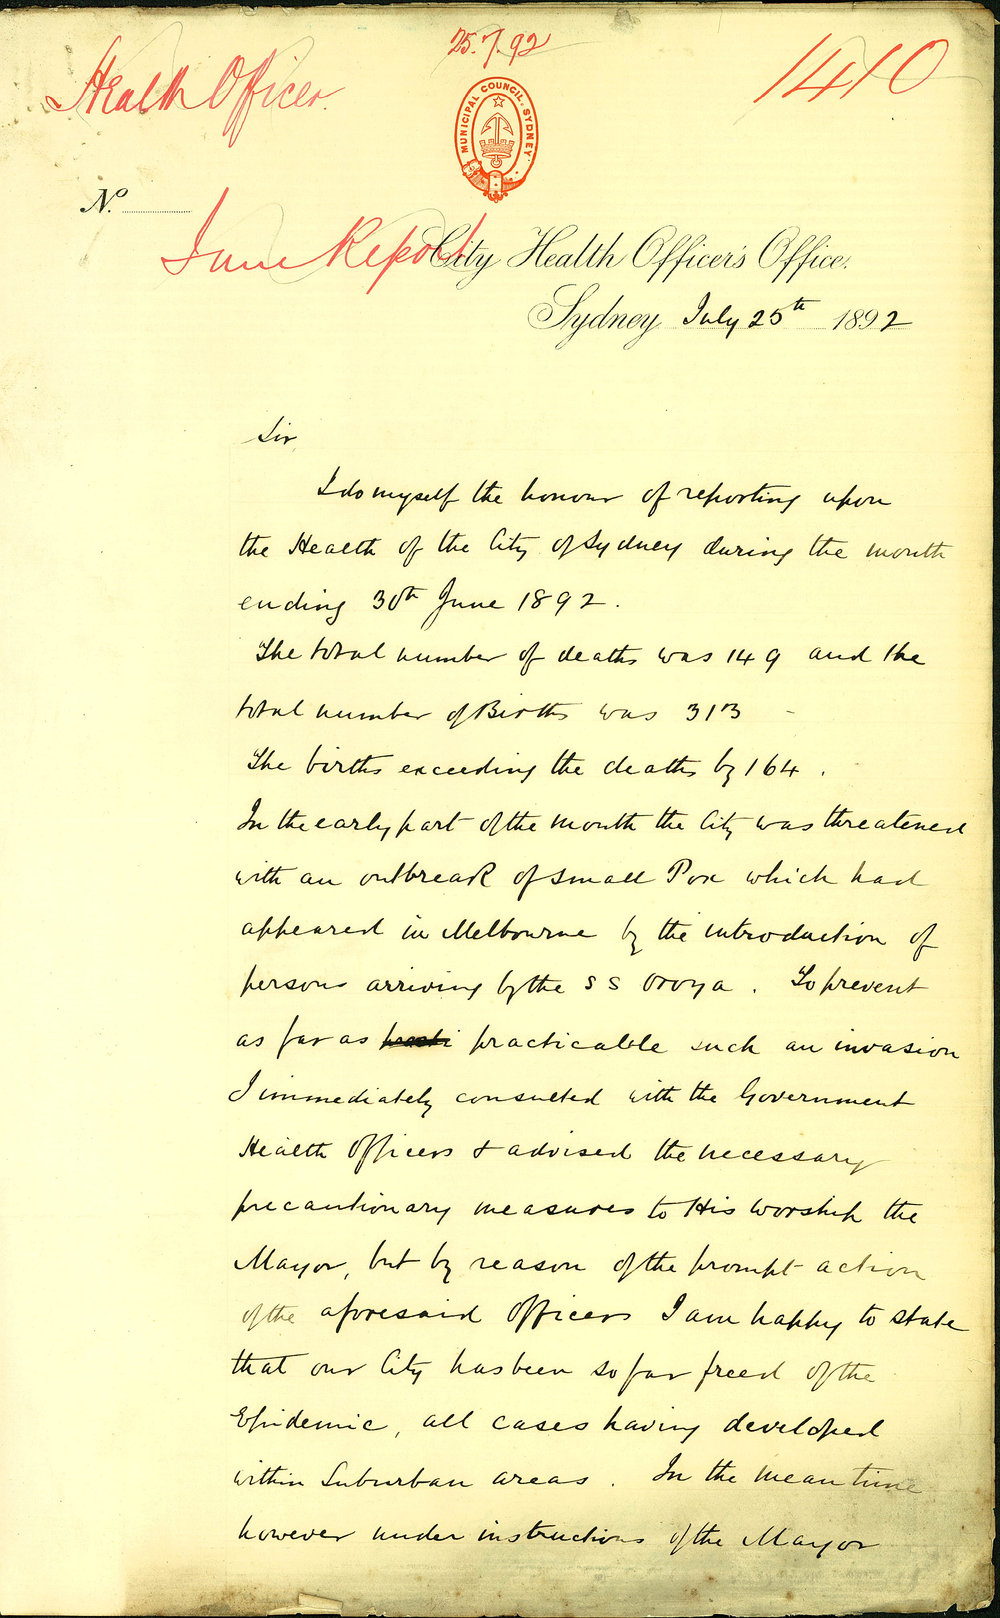 25.7.92
Health Officer.
1410
MUNICIPAL COUNCIL. SYDNEY.
No.
June Report
City Health Officer's Office.
Sydney July 25th 1892
Sir
I do myself the honour of reporting upon
the Health of the City of Sydney during the month
ending 30th June 1892.
The total number of deaths was 149 and the
total number of Births was 313 -
The births exceeding the deaths by 164.
In the early part of the month the City was threatened
with an outbreak of Small Pox which had
appeared in Melbourne by the introduction of
persons arriving by the S S Oroya. To prevent
as far as practi practicable such an invasion
I immediately consulted with the Government
Health Officers & advised the necessary
precautionary measures to His Worship the
Mayor, but by reason of the prompt action
of the aforesaid Officers I am happy to state
that our City has been so far freed of the
Epidemic, all cases having developed
within Suburban areas. In the mean time
however under instructions of the Mayor